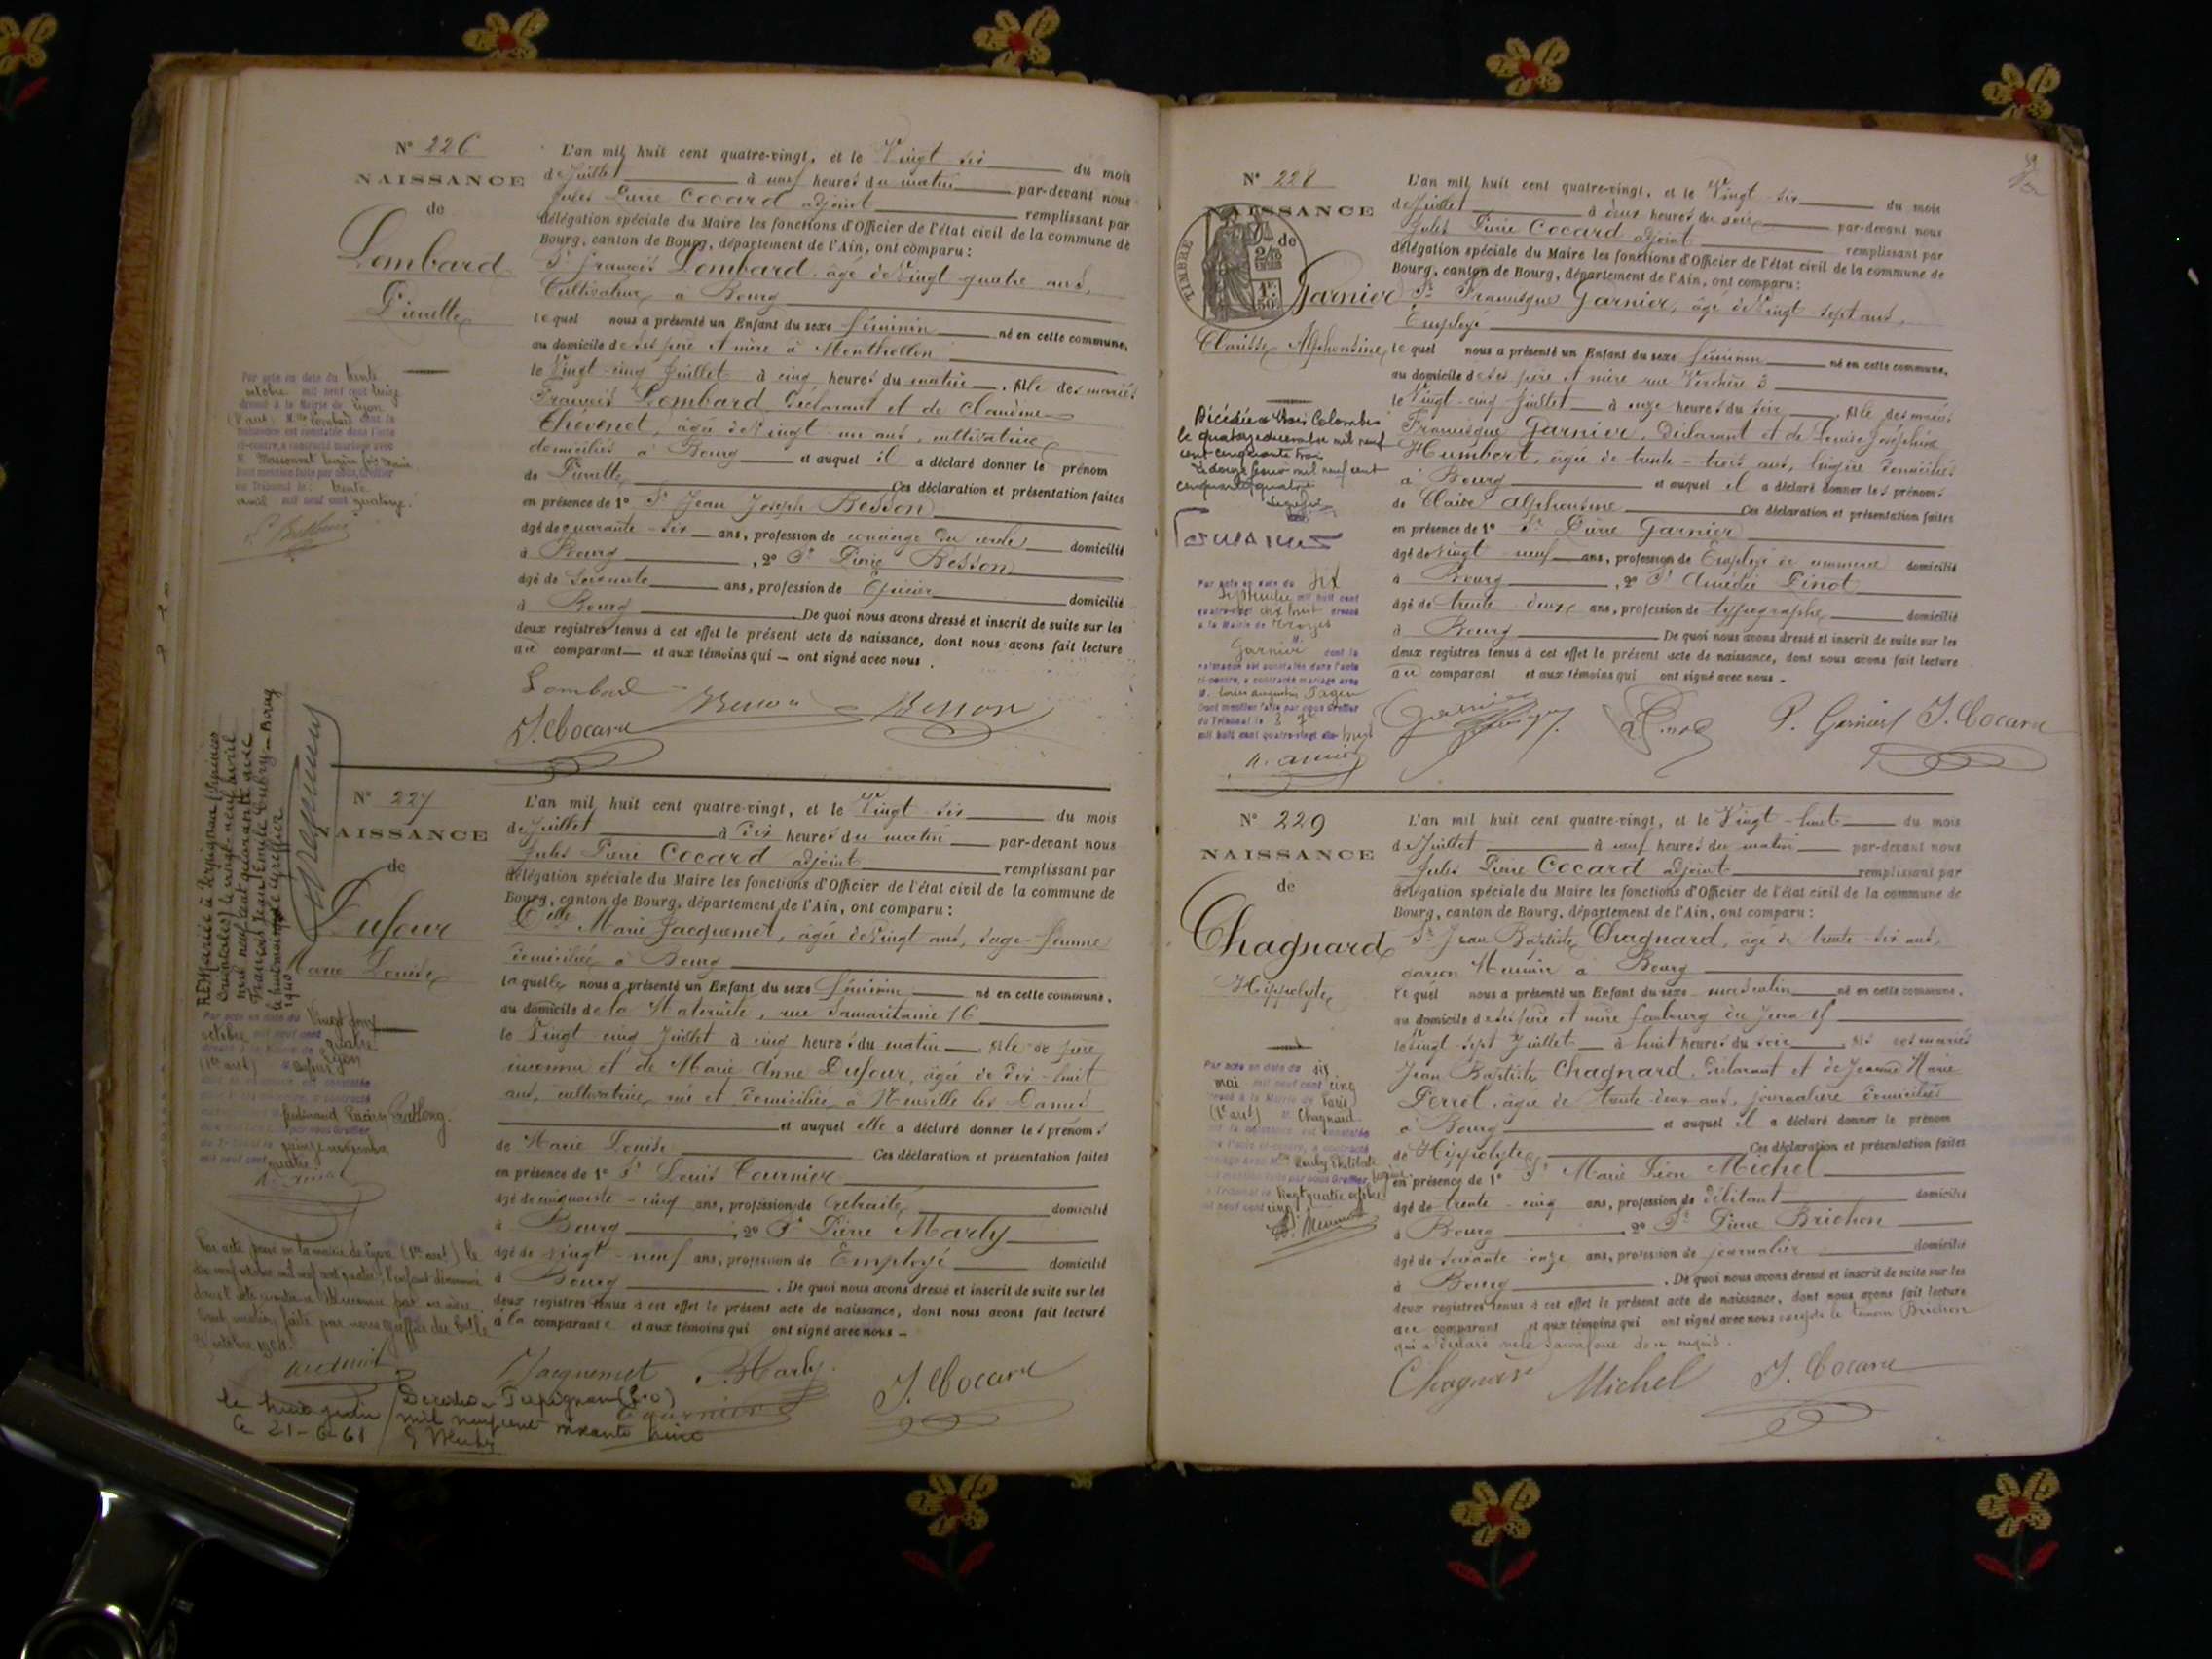 N° 226
NAISSANCE
de
Lombard
Pierrette
Par acte en date du trente
octobre mil neuf cent treize
dressé à la Mairie de Lyon
dont la
naissance est constatée dans l'acte
ci-contre, a contracté mariage avec
M.
dont mention faite par nous, Greffier
du Tribunal le trente
avril mil neuf cent quatorze.
L'an mil huit cent quatre-vingt, et le Vingt six du mois
de Juillet à neuf heures du matin par-devant nous
Jules Pierre Cocard adjoint remplissant par
délégation spéciale du Maire les fonctions d'Officier de l'état civil de la commune de
Bourg, canton de Bourg, département de l'Ain, ont comparu :
Sr François Lombard, âgé de Vingt quatre ans,
Cultivateur à Bourg
lequel nous a présenté un Enfant du sexe féminin né en cette commune,
au domicile de ses père et mère à Montholon
le Vingt-cinq Juillet à cinq heures du matin, fille des mariés
François Lombard Déclarant et de Claudine
Thévenet, âgée de Vingt-un ans, cultivatrice
domiciliés à Bourg et auquel il a déclaré donner le prénom
de Pierrette Ces déclaration et présentation faites
en présence de 1° Sr Jean Joseph Besson
âgé de quarante-six ans, profession de concierge du cercle domicilié
à Bourg, 2° Sr Pierre Besson
âgé de soixante ans, profession de Epicier domicilié
à Bourg De quoi nous avons dressé et inscrit de suite sur les
deux registres tenus à cet effet le présent acte de naissance, dont nous avons fait lecture
au comparant et aux témoins qui ont signé avec nous.
Lombard Besson Besson
J. Cocard
N° 227
NAISSANCE
de
Dufour
Marie Louise
REMariée à Perpignan (Pyrénées
Orientales) le vingt-neuf avril
mil neuf cent quarante avec
François Jean Emile Aubry - Bourg
le huit mai le greffier
Par acte en date du Vingt deux
octobre mil neuf cent quatre
dressé à la Mairie de Lyon
(1er arrt) Dufour
ferdinand
quinze novembre
mil neuf cent quatre
Par acte passé en la mairie de Lyon (1er arrt) le
dix neuf octobre mil neuf cent quatre, l'enfant dénommé
dans l'acte ci-contre a été reconnu par sa mère.
Dont mention faite par nous greffier
octobre 1904.
Décédée à Perpignan (P.O)
le trois juin mil neuf cent soixante un
le 21-6-61
L'an mil huit cent quatre-vingt, et le Vingt-six du mois
de Juillet à dix heures du matin par-devant nous
Jules Pierre Cocard adjoint remplissant par
délégation spéciale du Maire les fonctions d'Officier de l'état civil de la commune de
Bourg, canton de Bourg, département de l'Ain, ont comparu :
Delle Marie Jacquemet, âgée de Vingt ans, sage-femme
domiciliée à Bourg
laquelle nous a présenté un Enfant du sexe féminin né en cette commune,
au domicile de la Maternité, rue Samaritaine 16
le Vingt-cinq Juillet à cinq heures du matin, fille de père
inconnu et de Marie Anne Dufour, âgée de dix-huit
ans, cultivatrice née et domiciliée à Neuville les Dames
et auquel elle a déclaré donner les prénoms
de Marie Louise Ces déclaration et présentation faites
en présence de 1° Sr Louis Tournier
âgé de cinquante-cinq ans, profession de retraité domicilié
à Bourg, 2° Sr Pierre Marly
âgé de vingt-neuf ans, profession de Employé domicilié
à Bourg. De quoi nous avons dressé et inscrit de suite sur les
deux registres tenus à cet effet le présent acte de naissance, dont nous avons fait lecture
à la comparante et aux témoins qui ont signé avec nous
Jacquemet P. Marly J. Cocard
Tournier
N° 228
NAISSANCE
de
TIMBRE
Garnier
Clarisse Alphonsine
Décédée à Bois Colombes
le quatorze décembre mil neuf
cent cinquante trois
Le douze janvier mil neuf cent
cinquante quatre
Par acte en date du Six
Septembre mil huit cent
quatre-vingt dix huit dressé
à la Mairie de Troyes
M.
Garnier dont la
naissance est constatée dans l'acte
ci-contre, a contracté mariage avec
M. Louis Augustin Pageu
Dont mention faite par nous Greffier
du Tribunal le
mil huit cent quatre-vingt dix-huit
L'an mil huit cent quatre-vingt, et le Vingt-six du mois
de Juillet à deux heures du soir par-devant nous
Jules Pierre Cocard adjoint remplissant par
délégation spéciale du Maire les fonctions d'Officier de l'état civil de la commune de
Bourg, canton de Bourg, département de l'Ain, ont comparu :
Sr Francisque Garnier, âgé de Vingt-sept ans,
Employé
lequel nous a présenté un Enfant du sexe féminin né en cette commune,
au domicile de ses père et mère rue Verchère 3
le Vingt-cinq Juillet à onze heures du soir, fille des mariés
Francisque Garnier, Déclarant et de Louise Joséphine
Humbert, âgée de trente-trois ans, lingère domiciliés
à Bourg et auquel il a déclaré donner les prénoms
de Claire Alphonsine Ces déclaration et présentation faites
en présence de 1° Sr Pierre Garnier
âgé de vingt-neuf ans, profession de Employé de commerce domicilié
à Bourg, 2° Sr Amédée Pinot
âgé de trente-deux ans, profession de typographe domicilié
à Bourg De quoi nous avons dressé et inscrit de suite sur les
deux registres tenus à cet effet le présent acte de naissance, dont nous avons fait lecture
au comparant et aux témoins qui ont signé avec nous
Garnier P. Garnier J. Cocard
N° 229
NAISSANCE
de
Chagnard
Hippolyte
Par acte en date du six
mai mil neuf cent cinq
dressé à la Mairie de Paris
Chagnard
vingt quatre octobre
mil neuf cent cinq
L'an mil huit cent quatre-vingt, et le Vingt-huit du mois
de Juillet à neuf heures du matin par-devant nous
Jules Pierre Cocard adjoint remplissant par
délégation spéciale du Maire les fonctions d'Officier de l'état civil de la commune de
Bourg, canton de Bourg, département de l'Ain, ont comparu :
Sr Jean Baptiste Chagnard, âgé de trente-six ans,
Garçon Meunier à Bourg
lequel nous a présenté un Enfant du sexe masculin né en cette commune,
au domicile de ses père et mère faubourg du Jura
le Vingt-sept Juillet à huit heures du soir, fils des mariés
Jean Baptiste Chagnard, Déclarant et de Jeanne Marie
Perrot, âgée de trente-deux ans, journalière domiciliés
à Bourg et auquel il a déclaré donner le prénom
de Hippolyte Ces déclaration et présentation faites
en présence de 1° Sr Marie Léon Michel
âgé de trente-cinq ans, profession de débitant domicilié
à Bourg 2° Sr Pierre Brichon
âgé de soixante-onze ans, profession de journalier domicilié
à Bourg. De quoi nous avons dressé et inscrit de suite sur les
deux registres tenus à cet effet le présent acte de naissance, dont nous avons fait lecture
au comparant et aux témoins qui ont signé avec nous excepté le témoin Brichon
qui a déclaré ne le savoir faire de ce requis.
Chagnard Michel J. Cocard